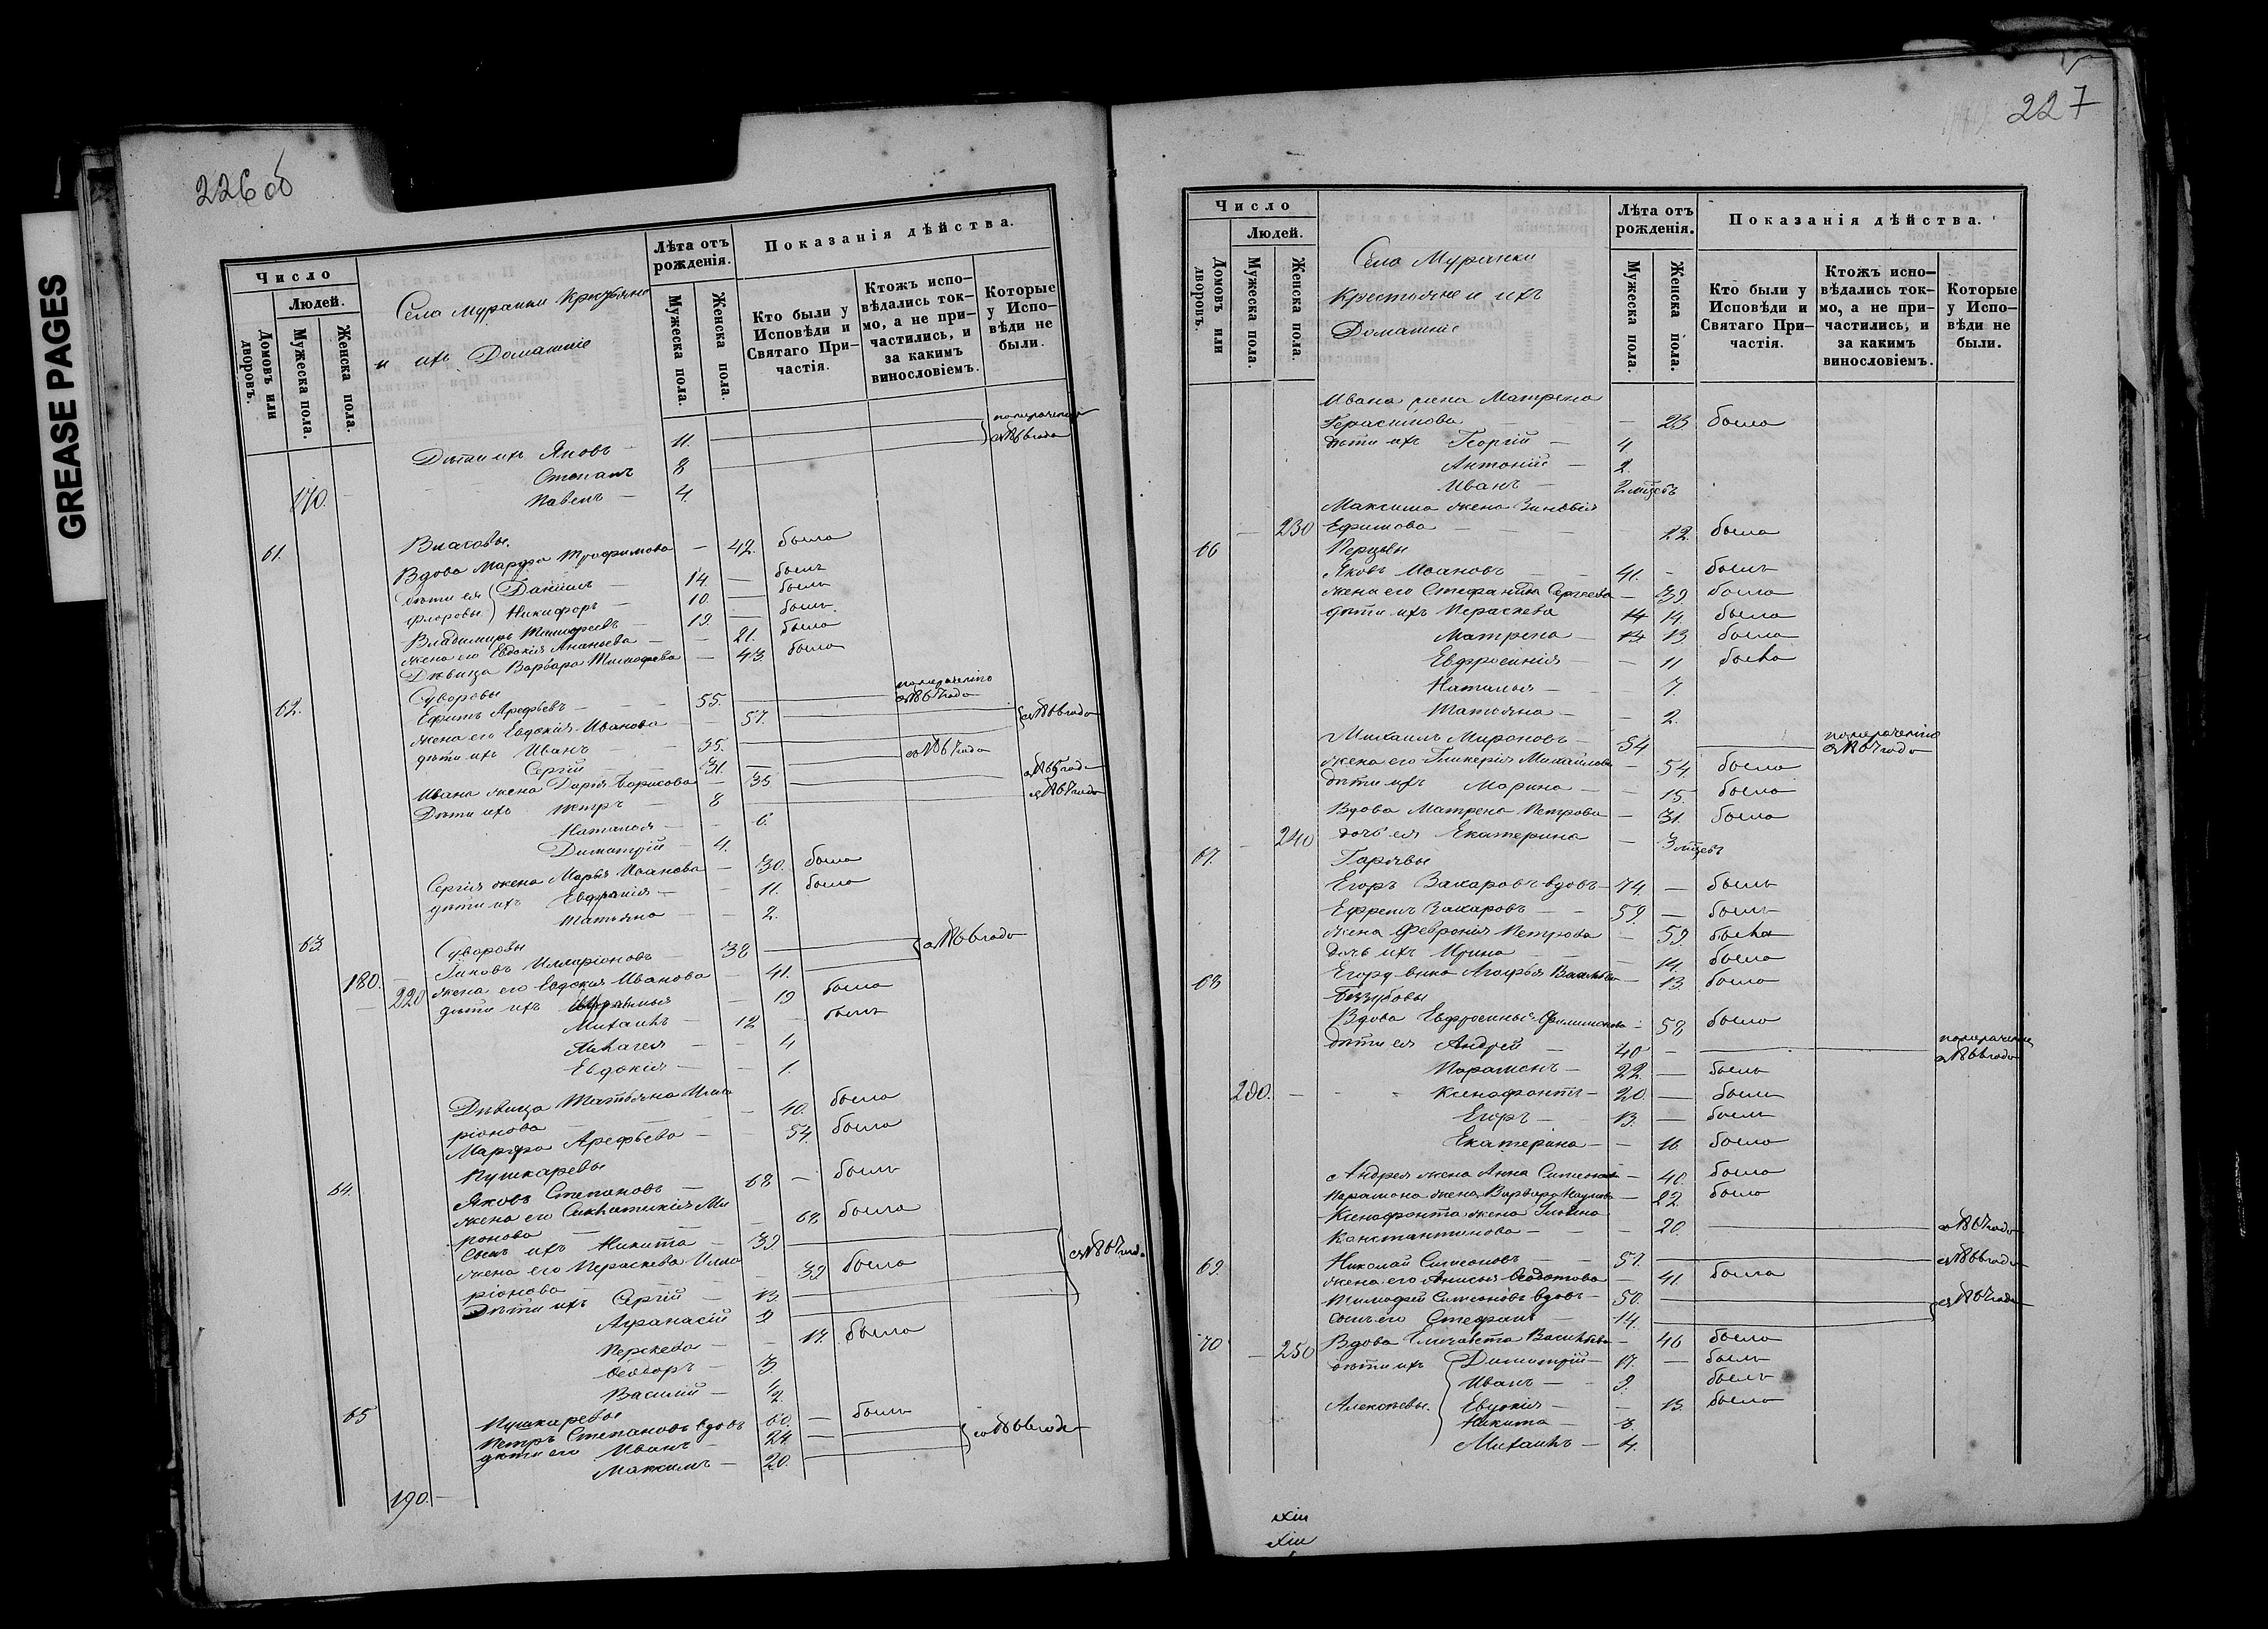 GREASE PAGES
226 об
Число
Людей.
Домовъ или дворовъ.
Мужеска пола.
Женска пола.
Села Муранки Крестьяне
и ихъ Домашніе
Лѣта отъ рожденія.
Мужеска пола.
Женска пола.
Показанія дѣйства.
Кто были у Исповѣди и Святаго Причастія.
Ктожъ исповѣдались токмо, а не причастились, и за какимъ винословіемъ.
Которые у Исповѣди не были.
Дѣти ихъ Яковъ — 11.
Степанъ 8
170. Павелъ — 4.
61. Власовы.
Вдова Марфа Трофимова — 42. была
дѣти ея Даніилъ — 14. — былъ
Флоровы Никифоръ — 10. — былъ
Владимиръ Тимофеевъ — 19. — былъ
жена его Евдокія Ананьева — 21. была
Дѣвица Варвара Тимофеева — 43. была
62. Суворовы
Ефимъ Арефьевъ — 55. съ 1867 года
жена его Евдокія Иванова — 57. съ 1866 года
дѣти ихъ Иванъ — 35. съ 1867 года
Сергій — 31.
Ивана жена Дарія Борисова — 35
Дѣти ихъ Петръ — 8
Наталья — 6.
Димитрій — 4.
Сергія жена Марья Иванова — 30. была
дѣти ихъ 11. была
Татьяна — 2.
63. Суворовы
Яковъ Илларіоновъ — 38 съ 1866 года
180. 220 жена его Евдокія Иванова — 41.
дѣти ихъ 19 была
Михаилъ — 12 — былъ
4
Евдокія — 1.
Дѣвица Татьяна Илла
ріонова — 40. была
Марфа Арефьева — 54. была
64. Пушкаревы
Яковъ Степановъ — 68 — былъ
жена его Ми
ронова — 68 была
сынъ ихъ Никита — 39. съ 1867 года
жена его Параскева Илла
ріонова — 39 была
Дѣти ихъ Сергій — 13.
Афанасій 9
Перскева — 17. была
Ѳеодоръ — 3
Василій — 1/2
65 Пушкаревы
Петръ Степановъ вдовъ 60. — былъ
дѣти его Иванъ — 24. съ 1866 года
Максимъ — 20.
190. —
227
Число
Людей.
Домовъ или дворовъ.
Мужеска пола.
Женска пола.
Села Муранки
Крестьяне и ихъ
Домашніе
Лѣта отъ рожденія.
Мужеска пола.
Женска пола.
Показанія дѣйства.
Кто были у Исповѣди и Святаго Причастія.
Ктожъ исповѣдались токмо, а не причастились, и за какимъ винословіемъ.
Которые у Исповѣди не были.
Ивана жена Матрена
Герасимова — 23 была
дѣти ихъ Георгій — 4
Антоній — 2.
Иванъ — 2 мѣсяцевъ
Максима жена Зиновія
230 Ефимова — 22. была
66 Перцевы
Яковъ Ивановъ — 41. — былъ
жена его Стефанида Сергеева — 39 была
дѣти ихъ Параскева 14. была
Матрена — 13 была
Евфросинія — 11 была
Наталья — 7.
Татьяна — 2.
Михаилъ Мироновъ — 54 съ 1867 года
жена его Гликерія Михайлова — 54 была
дѣти ихъ Марина — 15. была
Вдова Матрена Петрова — 31. была
240 дочь ея Екатерина — 3 мѣсяцевъ
67. Гаряевы
Егоръ Захаровъ вдовъ — 74. — былъ
Ефремъ Захаровъ — 59. — былъ
жена Февронія Петрова — 59. была
дочь ихъ Ирина — 14. была
Егора внука Агафья Васильева — 13. была
68 Беззубовы
Вдова Евфросинья Филимонова — 58. была
дѣти ея Андрей — 40 — съ 1866 года
Парамонъ — 22. — былъ
200. Ксенофонтъ — 20. — былъ
Егоръ — 13. — былъ
Екатерина — 16. была
Андрея жена Анна — 40. была
Парамона жена Варвара Наумова — 22. была
Ксенофонта жена
Константинова — 20. съ 1867 года
69. Николай Симеоновъ — 57. съ 1866 года
жена его Анисья Ѳедотова — 41. была
Тимофей Симеоновъ вдовъ — 50. съ 1867 года
сынъ его Стефанъ — 14.
70 250 Вдова Елисавета Васильева — 46 была
дѣти ихъ Димитрій — 17. — былъ
Иванъ — 9. былъ
Алексѣевы. Евдокія — 13. была
Никита — 3.
Михаилъ — 4.